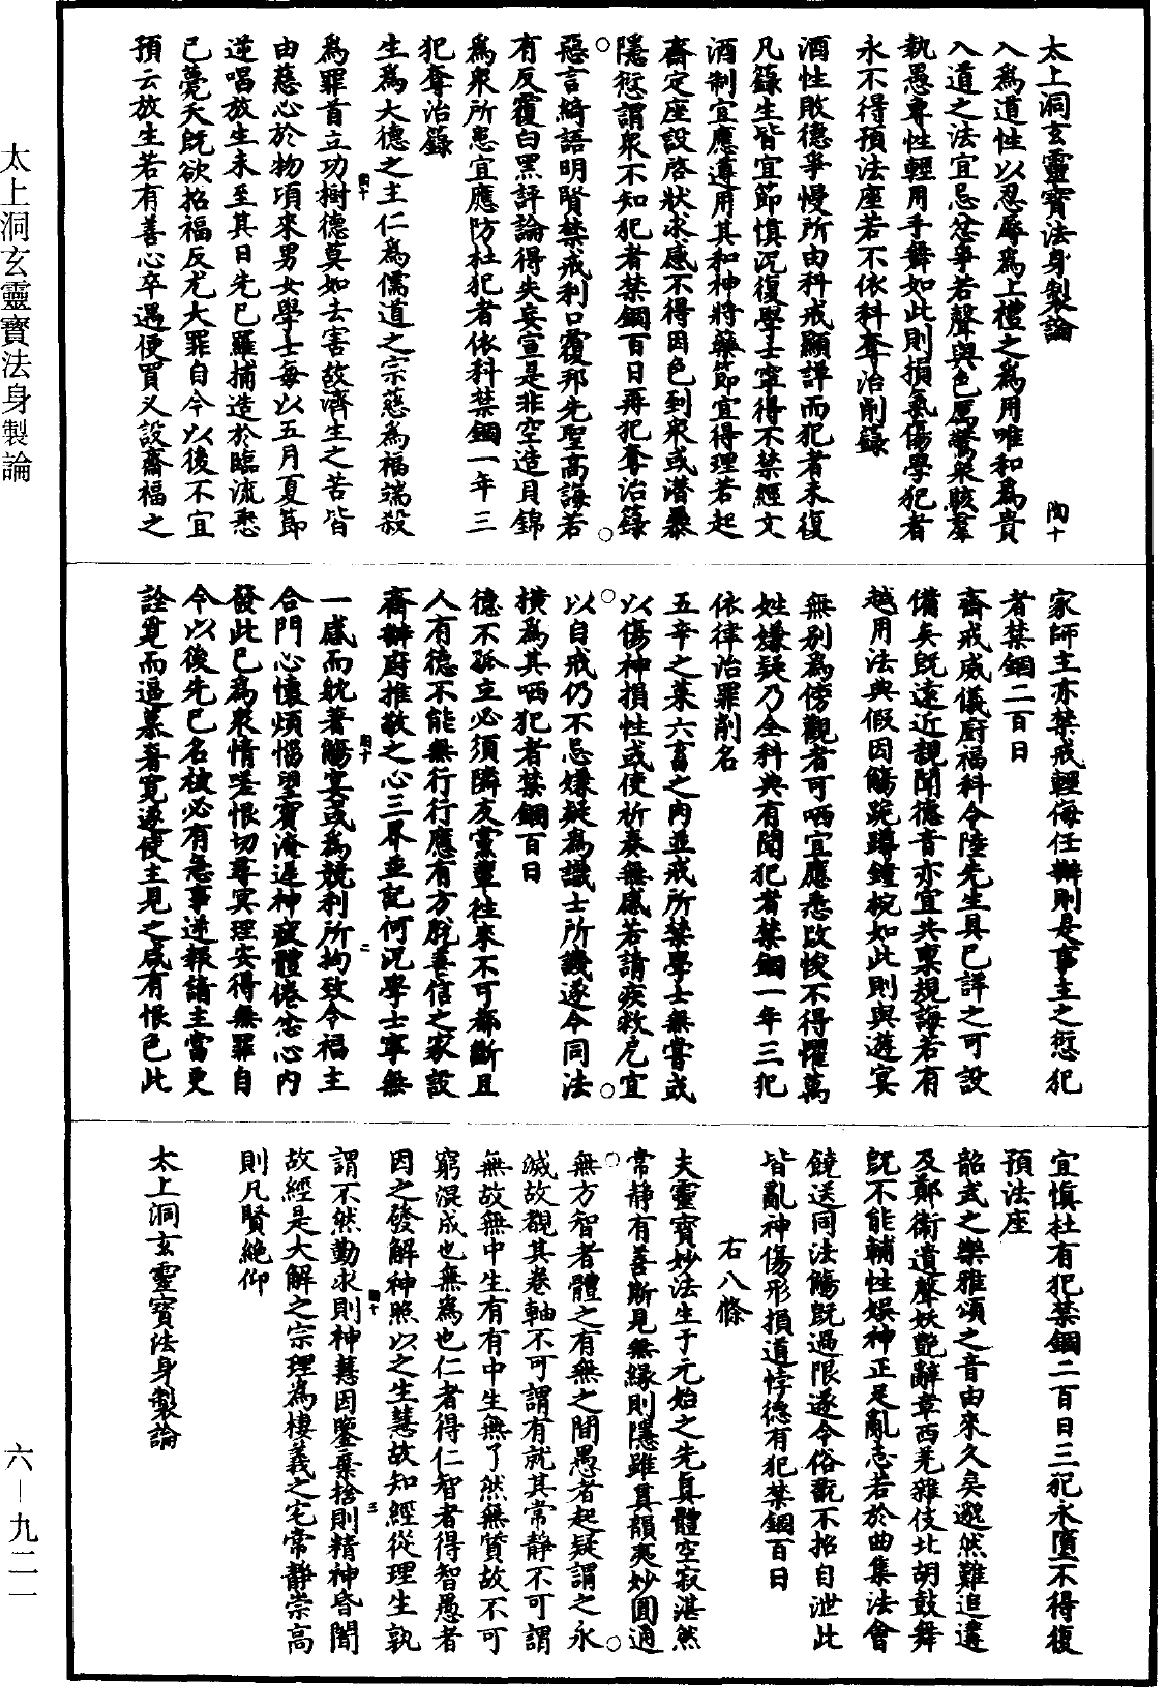 太上洞玄靈寶法身製論 陶十
入爲道性以忍辱爲上禮之爲用唯和爲貴
入道之法宜忌忿爭若聲與色厲驚衆駭羣
執愚專性輕用手舞如此則損氣傷學犯者
永不得預法座若不依科奪治削籙
酒性敗德爭慢所由科戒顯譁而犯者未復
凡籙生皆宜節慎況復學士寧得不禁經文
酒制宜應遵用其和神將藥節宜得理若起
齋定座設啓狀求感不得因色到衆或潜暴
隱愆謂衆不知犯者禁錮百日再犯奪治籙
惡言綺語明賢禁戒利口覆邦先聖高誨若
有反覆白黑評論得失妄宣是非空造貝錦
爲衆所患宜應防杜犯者依科禁錮一年三
犯奪治籙
生爲大德之主仁爲儒道之宗慈爲福端殺
爲罪首立功樹德莫如去害故濟生之苦皆
由慈心於物頃來男女學士每以五月夏節
逆唱放生未至其日先已羅捕造於臨流悉
已薨夭旣欲招福反尤大罪自今以後不宜
預云放生若有善心卒遇便買乂設齋福之
家師主亦禁戒輕侮任辦則是事主之愆犯
者禁錮二百日
齋戒威儀厨福科令陸先生具已詳之可設
備矣旣遠近親聞德音亦宜共稟規誨若有
越用法典假因觴跪蹲鍾椀如此則與遊宴
無別爲傍觀者可哂宜應悉改悛不得懼萬
姓嫌疑乃全科典有聞犯者禁錮一年三犯
依律治罪削名
五辛之菜六畜之肉並戒所禁學士無嘗或
以傷神損性或使祈奏無感若請疾救危宜
以自戒仍不忌嫌疑爲識士所譏遂令同法
横爲其哂犯者禁錮百日
德不孤立必須隣友黨輩往來不可都斷且
人有德不能無行行應有方脫華信之家設
齋辦厨推敬之心三界並記何況學士寧無
一感而躭著觴宴或爲競利所拘致令福主
合門心懷煩惱望賓淹遲神疲體倦忿心内
發此已爲衆情嗟恨切尋冥理安得無罪自
今以後先已名被必有急事逆報請主當更
詮覓而逼慕奢寬遂使主見之咸有恨色此
宜慎杜有犯禁錮二百日三犯永墮不得復
預法座
韶武之樂雅頌之音由來久矣邈然難追遺
及鄭衞遺聲妖艷辭章西羌雜伎北胡鼓舞
旣不能輔性娱神正足亂志若於曲集法會
饒送同法觴旣過限遂令俗翫不招自泄此
皆亂神傷形損道悖德有犯禁錮百日
右八條
夫靈寶妙法生于元始之先眞體空寂湛然
常靜有善斯見無緣則隱雖眞韻夷妙圓通
無方智者體之有無之間愚者起疑謂之永
滅故觀其卷軸不可謂有就其常靜不可謂
無故無中生有有中生無了然無質故不可
窮混成也無爲也仁者得仁智者得智愚者
因之發解神照以之生慧故知經從理生孰
謂不然勤求則神慧因鑒棄捨則精神昏闇
故經是大解之宗理爲棲義之宅常靜崇高
則凡賢絶仰
太上洞玄靈寶法身製論
太上洞玄靈寶法身製論
六—九二一